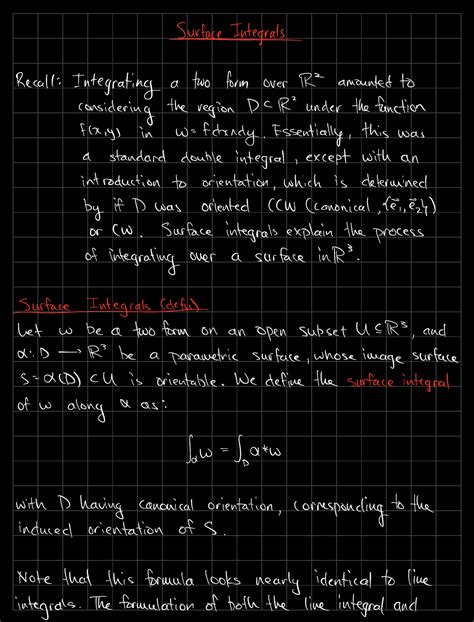 Surface Integrals
Recall: Integrating a two form over ℝ² amounted to
considering the region D⊂ℝ² under the function
f(x,y) in ω=fdx∧dy. Essentially, this was
a standard double integral, except with an
introduction to orientation, which is determined
by if D was oriented CCW (canonical, {e⃗₁,e⃗₂})
or CW. Surface integrals explain the process
of integrating over a surface in ℝ³.
Surface Integrals (defn)
Let ω be a two form on an open subset U⊆ℝ³, and
α: D → ℝ³ be a parametric surface, whose image surface
S=α(D) ⊂U is orientable. We define the surface integral
of ω along α as:
∫_α ω = ∫_D α*ω
with D having canonical orientation, corresponding to the
induced orientation of S.
Note that this formula looks nearly identical to line
integrals. The formulation of both the line integral and